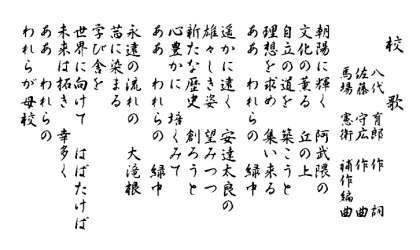 校歌
八代育郎 作詞
佐藤守広 作曲
馬場憲衛 補作編曲
朝陽に輝く 阿武隈の
文化の薫る 丘の上
自立の道を 築こうと
理想を求め 集い来る
ああ われらの 緑中
遥かに遠く 安達太良の
雄々しき姿 望みつつ
新たな歴史 創ろうと
心豊かに 培くみて
ああ われらの 緑中
永遠の流れの 大滝根
苔に染まる
学び舎を
世界に向けて はばたけば
未来は拓き 幸多く
ああ われらの
われらが母校